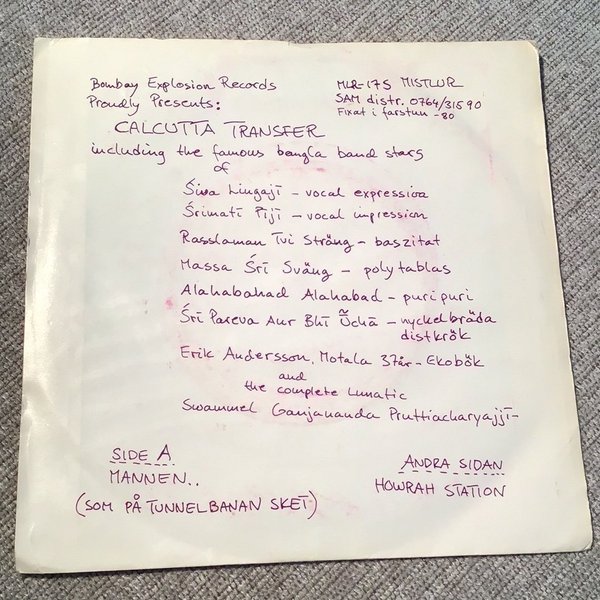 Bombay Explosion Records
Proudly Presents:
MLR-17S MISTLUR
SAM distr. 0764/31590
Fixat i farstun -80
CALCUTTA TRANSFER
including the famous bangla band stars
of
Śiva Lingajī - vocal expression
Śrimatī Pījī - vocal impression
Rasslaman Tvi Sträng - baszitat
Massa Śrī Sväng - polytablas
Alahabahad Alahabad - puripuri
Śrī Pareva Aur Bhī Ũchā - nyckelbräda
distkrök
Erik Andersson, Motala 37år - Ekobök
and
the complete lunatic
Swammel Ganjananda Pruttiacharyajjī-
SIDE A
MANNEN..
(SOM PÅ TUNNELBANAN SKET)
ANDRA SIDAN
HOWRAH STATION